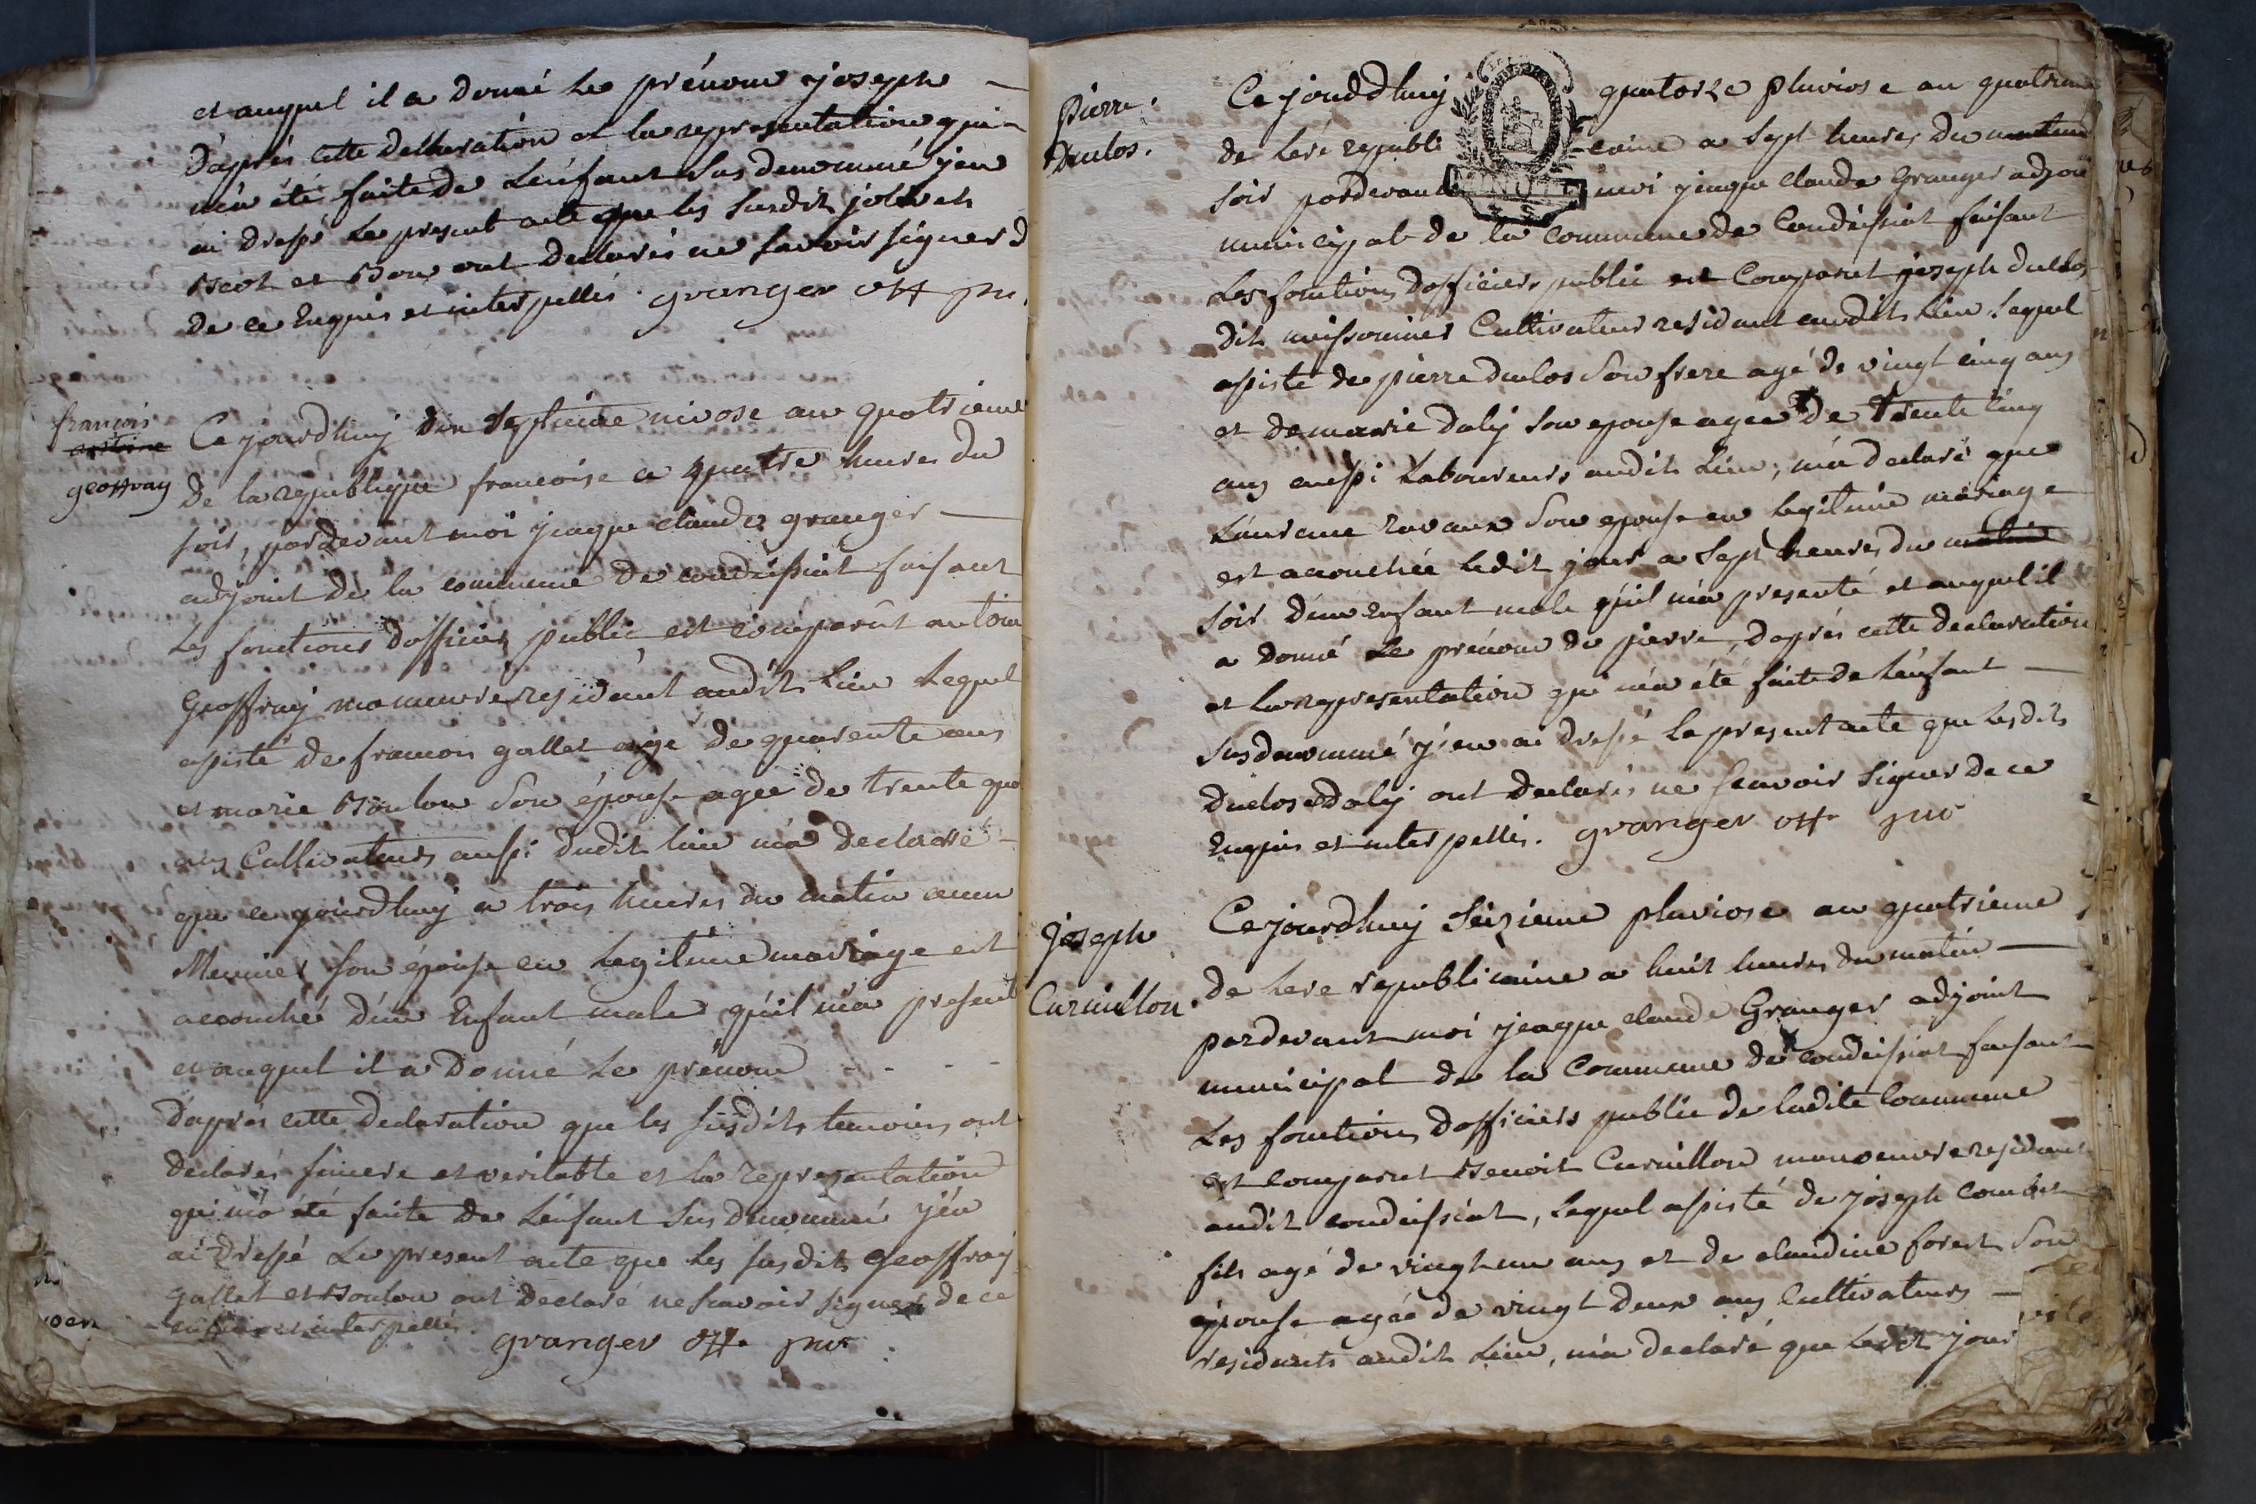 et auquel il a donné le prénom joseph —
d'aprés cette declaration et la representation qui
m'a été faite de l'énfant sus denommé j'en
ai dressé le present acte que les susdits
et Bon ont declarés ne savoir signer
de ce Enquis et interpellés. granger off pu.
françois
antoine
geoffray
Ce jourdhuy septieme nivose an quatrieme
de la republique francoise a quatre heures du
soir, pardevant moi jeaque claude granger —
adjoint de la commune de condeissiat faisant
les fonctions dofficier public est comparût antoin
Geoffray manouvre residant audit lieu lequel
assisté de francois gallet agé de quarente ans
et marie Boulon son épouse agee de trente qua
ans Cultivateurs aussi dudit lieu m'a declarré
que ce jourdhuy a trois heures du matin
Meunier son épouse en legitime mariage est
accouché d'un Enfant male qu'il m'a presenté
et auquel il a donné le prénom - - -
d'aprés cette declaration que les susdits temoins ont
declarés sincere et veritable et la representation
qui m'a été faite de l'énfant sus denommé j'én
ai dressé le present acte que les susdits Geoffray
gallet et Boulon ont declaré ne scavoir signer de ce
enquis et interpellés.
granger off. pub
Pierre
Duclos.
Ce jourd'huy quatorze pluviose an quatrieme
de l'ere republi -caine a sept heures du matin
soir pardevant moi jeaque claude Granger adjoi
municipal de la commune de Condeissiat faisant
les fonctions dofficiers public est Comparut joseph duclos
dit missonnier Cultivateur residant audit lieu lequel
assisté de pierre duclos son frere agé de vingt cinq ans
et de marie daly son epouse agee de trente cinq
ans aussi laboureurs audit lieu, m'a declaré que
ravaux son epouse en legitime mariage
est accouchée ledit jour a sept heures du matin
soir d'un enfant male qu'il m'a presenté et auquel il
a donné le prénom de pierre, d'aprés cette declaration
et la representation qui m'a été faite de l'énfant —
sus denommé j'en ai dressé le present acte que lesdits
duclos et daly ont declarés ne scavoir signer de ce
Enquis et interpellés. granger off. pub
joseph
Curnillon.
Ce jourdhuy seizieme pluviose an quatrieme
de l'ere republicaine a huit heures du matin —
pardevant moi jeaque claude Granger adjoint
municipal de la Commune de condeissiat faisant
les fonctions dofficiers public de ladite Commune
est comparut Benoit Curnillon manoeuvre residant
audit condeissiat, lequel assisté de joseph combet
fils agé de vingt un ans et de claudine forest son
épouse agée de vingt deux ans Cultivateurs —
residants audit lieu, m'a declaré que ledit jour